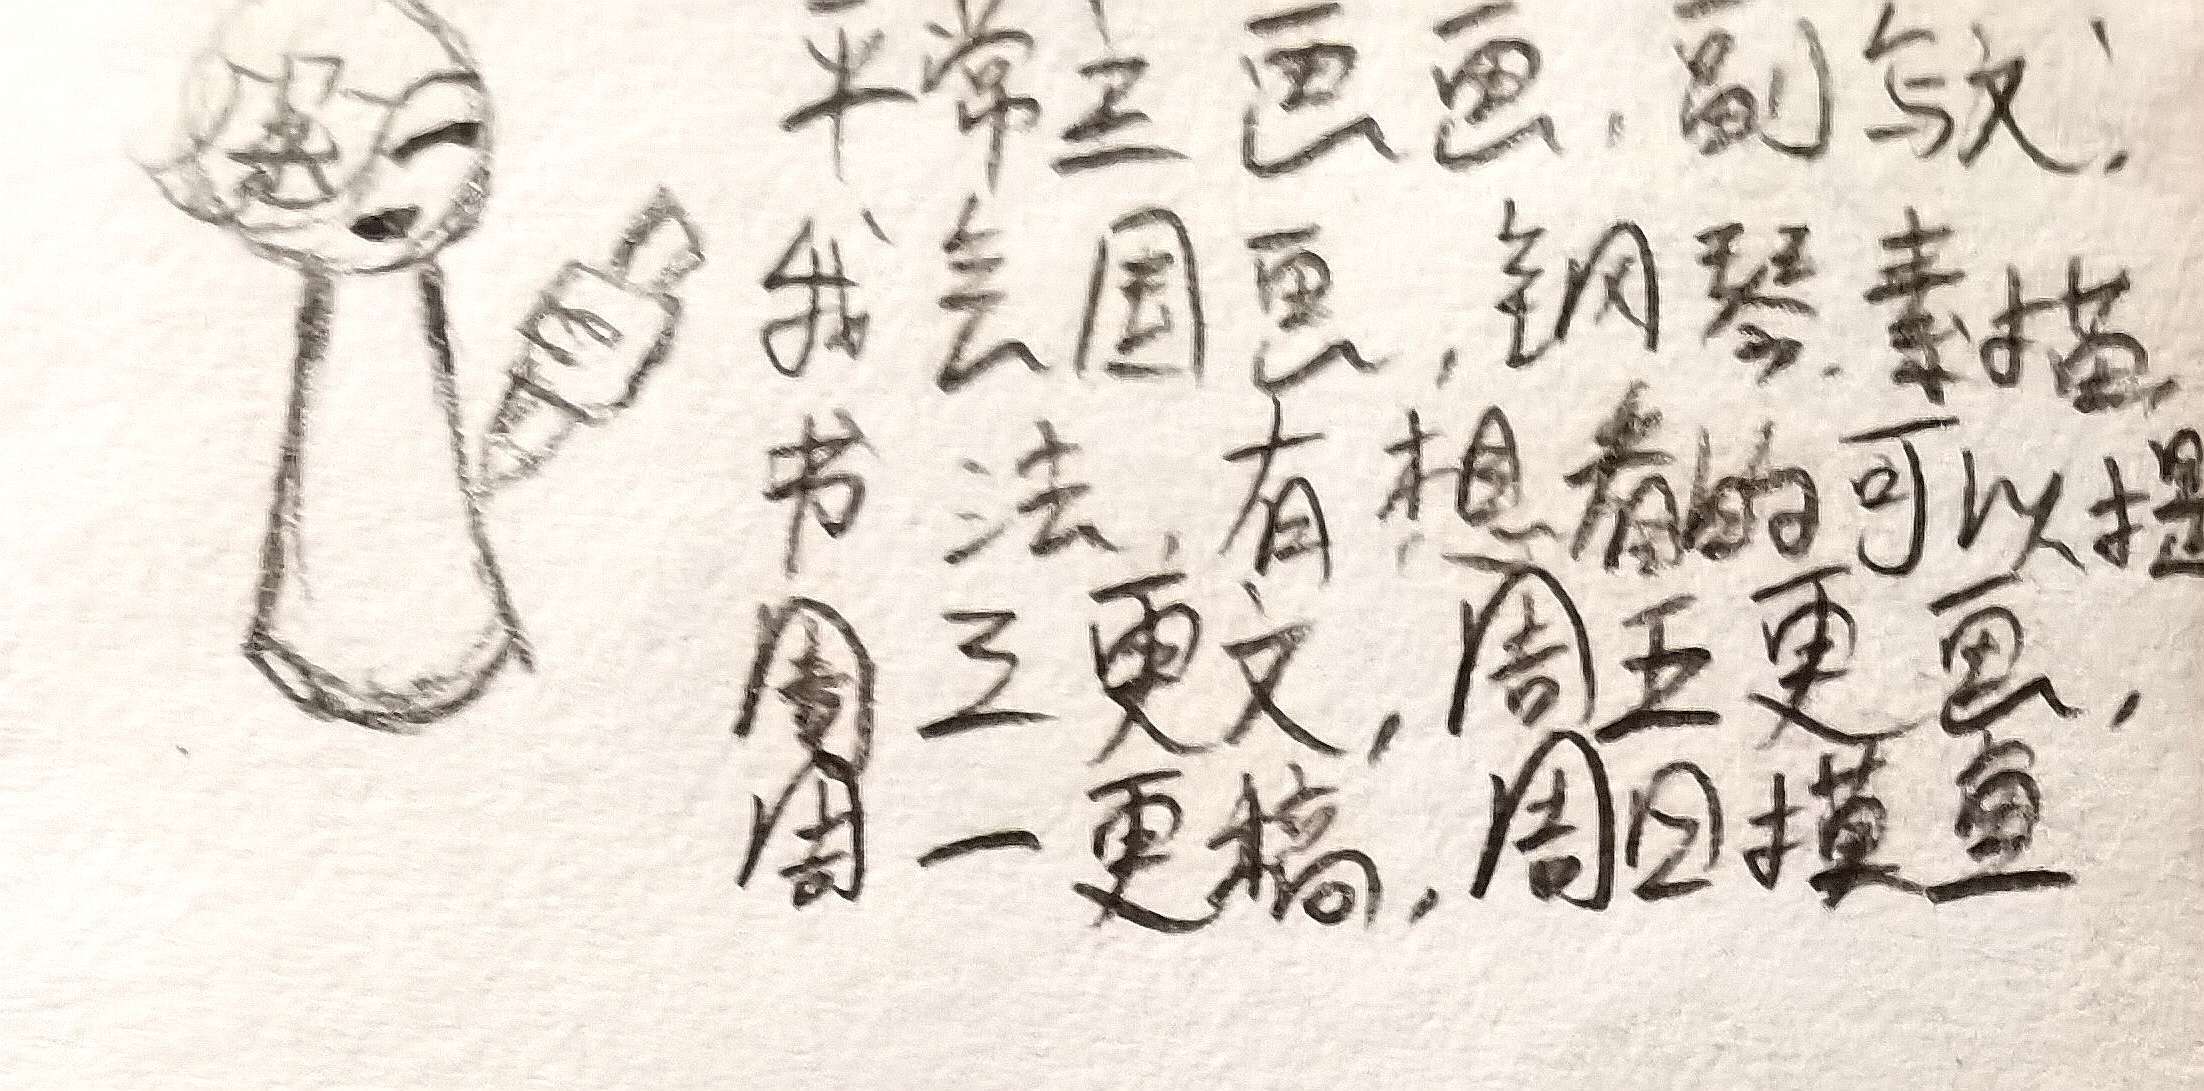 平常主画画.副写文,
我会国画,钢琴.素描,
书法,有想看的可以提
周三更文,周五更画,
周一更稿,周日摸鱼